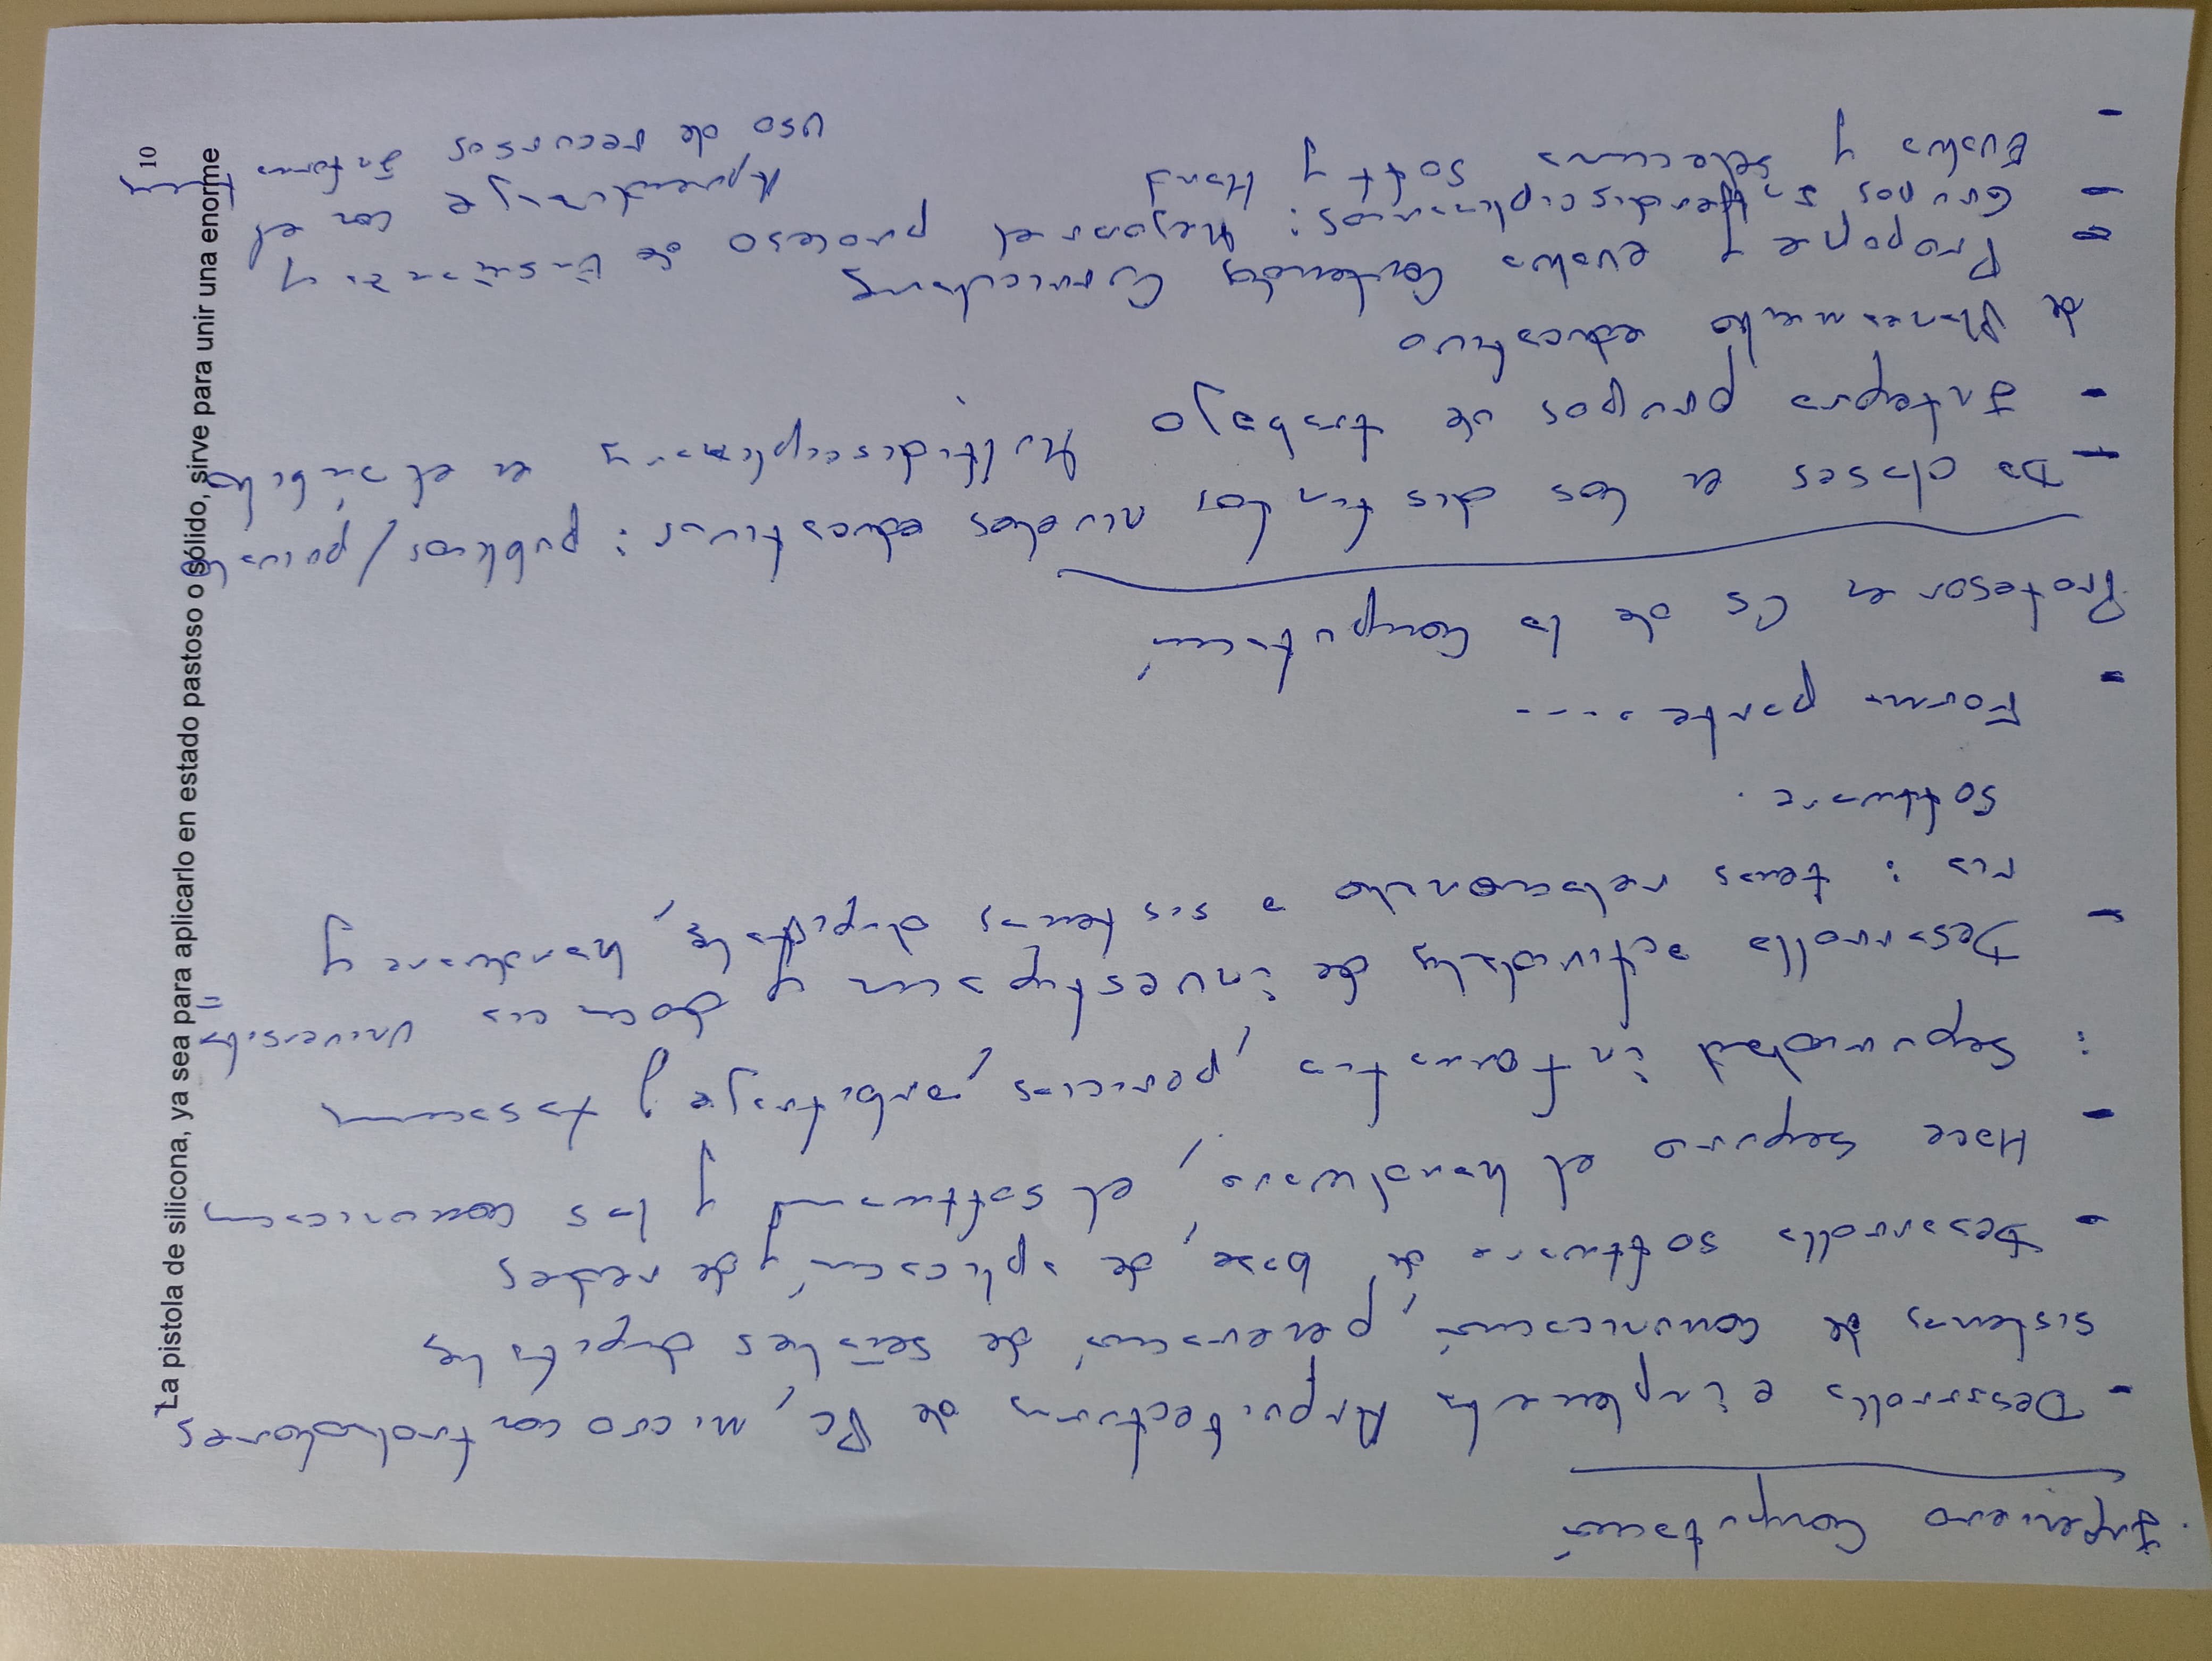 Ingeniero Computación
- Desarrolla e implementa Arquitecturas de Pc, microcontroladores,
sistemas de comunicación, generación de señales digitales
- Desarrolla software de base, de aplicación y de redes
- Hace seguro el hardware, el software y las comunicaciones
: Seguridad informática, pericias, arbitraje y tasaciones
- Desarrolla actividades de investigación y docencia universita=
ria : temas relacionado a sistemas digitales, hardware y
software.
- Forma parte ....
Profesor en Cs de la Computación
- Da clases en los distintos niveles educativos : publicos / privados
- Integra grupos de trabajo Multidisciplinarios en el ámbito
de Planeamiento educativo
- Propone y evalua Contenidos Curriculares
- Grupos Interdisciplinarios : Mejorar el proceso de Enseñanza y
Aprendizaje con el
uso de recursos Informáticos
- Evalua y selecciona Soft y Hard
La pistola de silicona, ya sea para aplicarlo en estado pastoso o sólido, sirve para unir una enorme
10